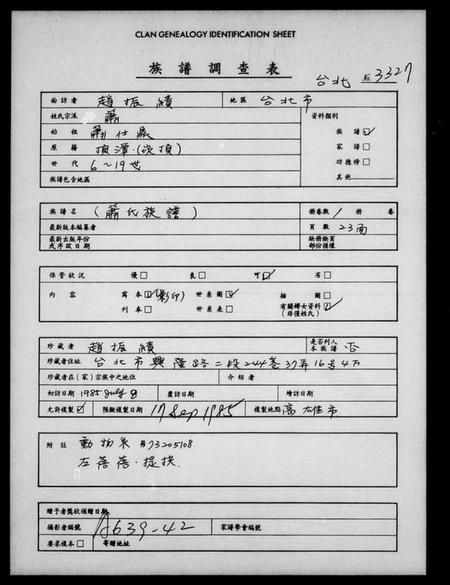 CLAN GENEALOGY IDENTIFICATION SHEET
族譜調查表
台北 3327
面訪者 趙振績 地區 台北市
姓氏宗派 蕭 資料類別
始祖 蕭仕鼎 族譜☑
原籍 家譜□
世代 6~19世 功德榜□
族譜包含地區 其他
族譜名 (蕭氏族譜) 冊卷數 / 冊 卷
最新版本編纂者 頁數 23面
最新出版年份 缺冊缺頁
或序政日期 部份損壞
保管狀況 優□ 良□ 可☑ 劣□
內容 寫本☑(影印) 世系圖☑ 插圖□ 有關婦女資料☑
刊本□ 世系表□ (非僅姓氏)
珍藏者 趙振績 是否列入本族譜 否
珍藏者住址 台北市興隆路二段244巷37弄16号4F
珍藏者在(家)宗族中之地位 介紹者
初訪日期 1985 July 8 覆訪日期 續訪日期
允許複製☑ 預擬複製日期 17 Sep 1985 複製地點 高雄市
附註 動物系 973205108
左蓓蓓·提供
贈予者獎狀頒贈日期
攝影者編號 A639-42 家譜學會編號
要求複本□ 寄贈地址